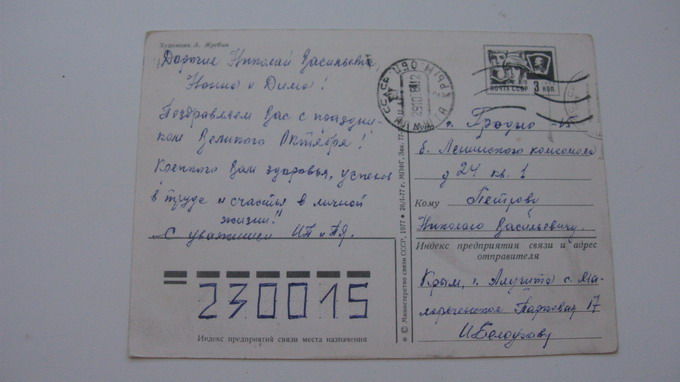 Художник А. Жребин
Дорогие Николай Васильевич,
Нонна и Дима!
Поздравляем Вас с праздни-
ком Великого Октября!
Крепкого Вам здоровья, успехов
в труде и счастья в личной
жизни!
С уважением
230015
Индекс предприятия связи места назначения
© Министерство связи СССР, 1977
ПОЧТА СССР
3 коп
г. Гродно
б. Ленинского комсомола
д 24 кв. 1
Кому Петрову
Николаю Васильевичу.
Индекс предприятия связи и адрес
отправителя
Крым, г. Алушта с. Ма-
лореченское Парковая 17